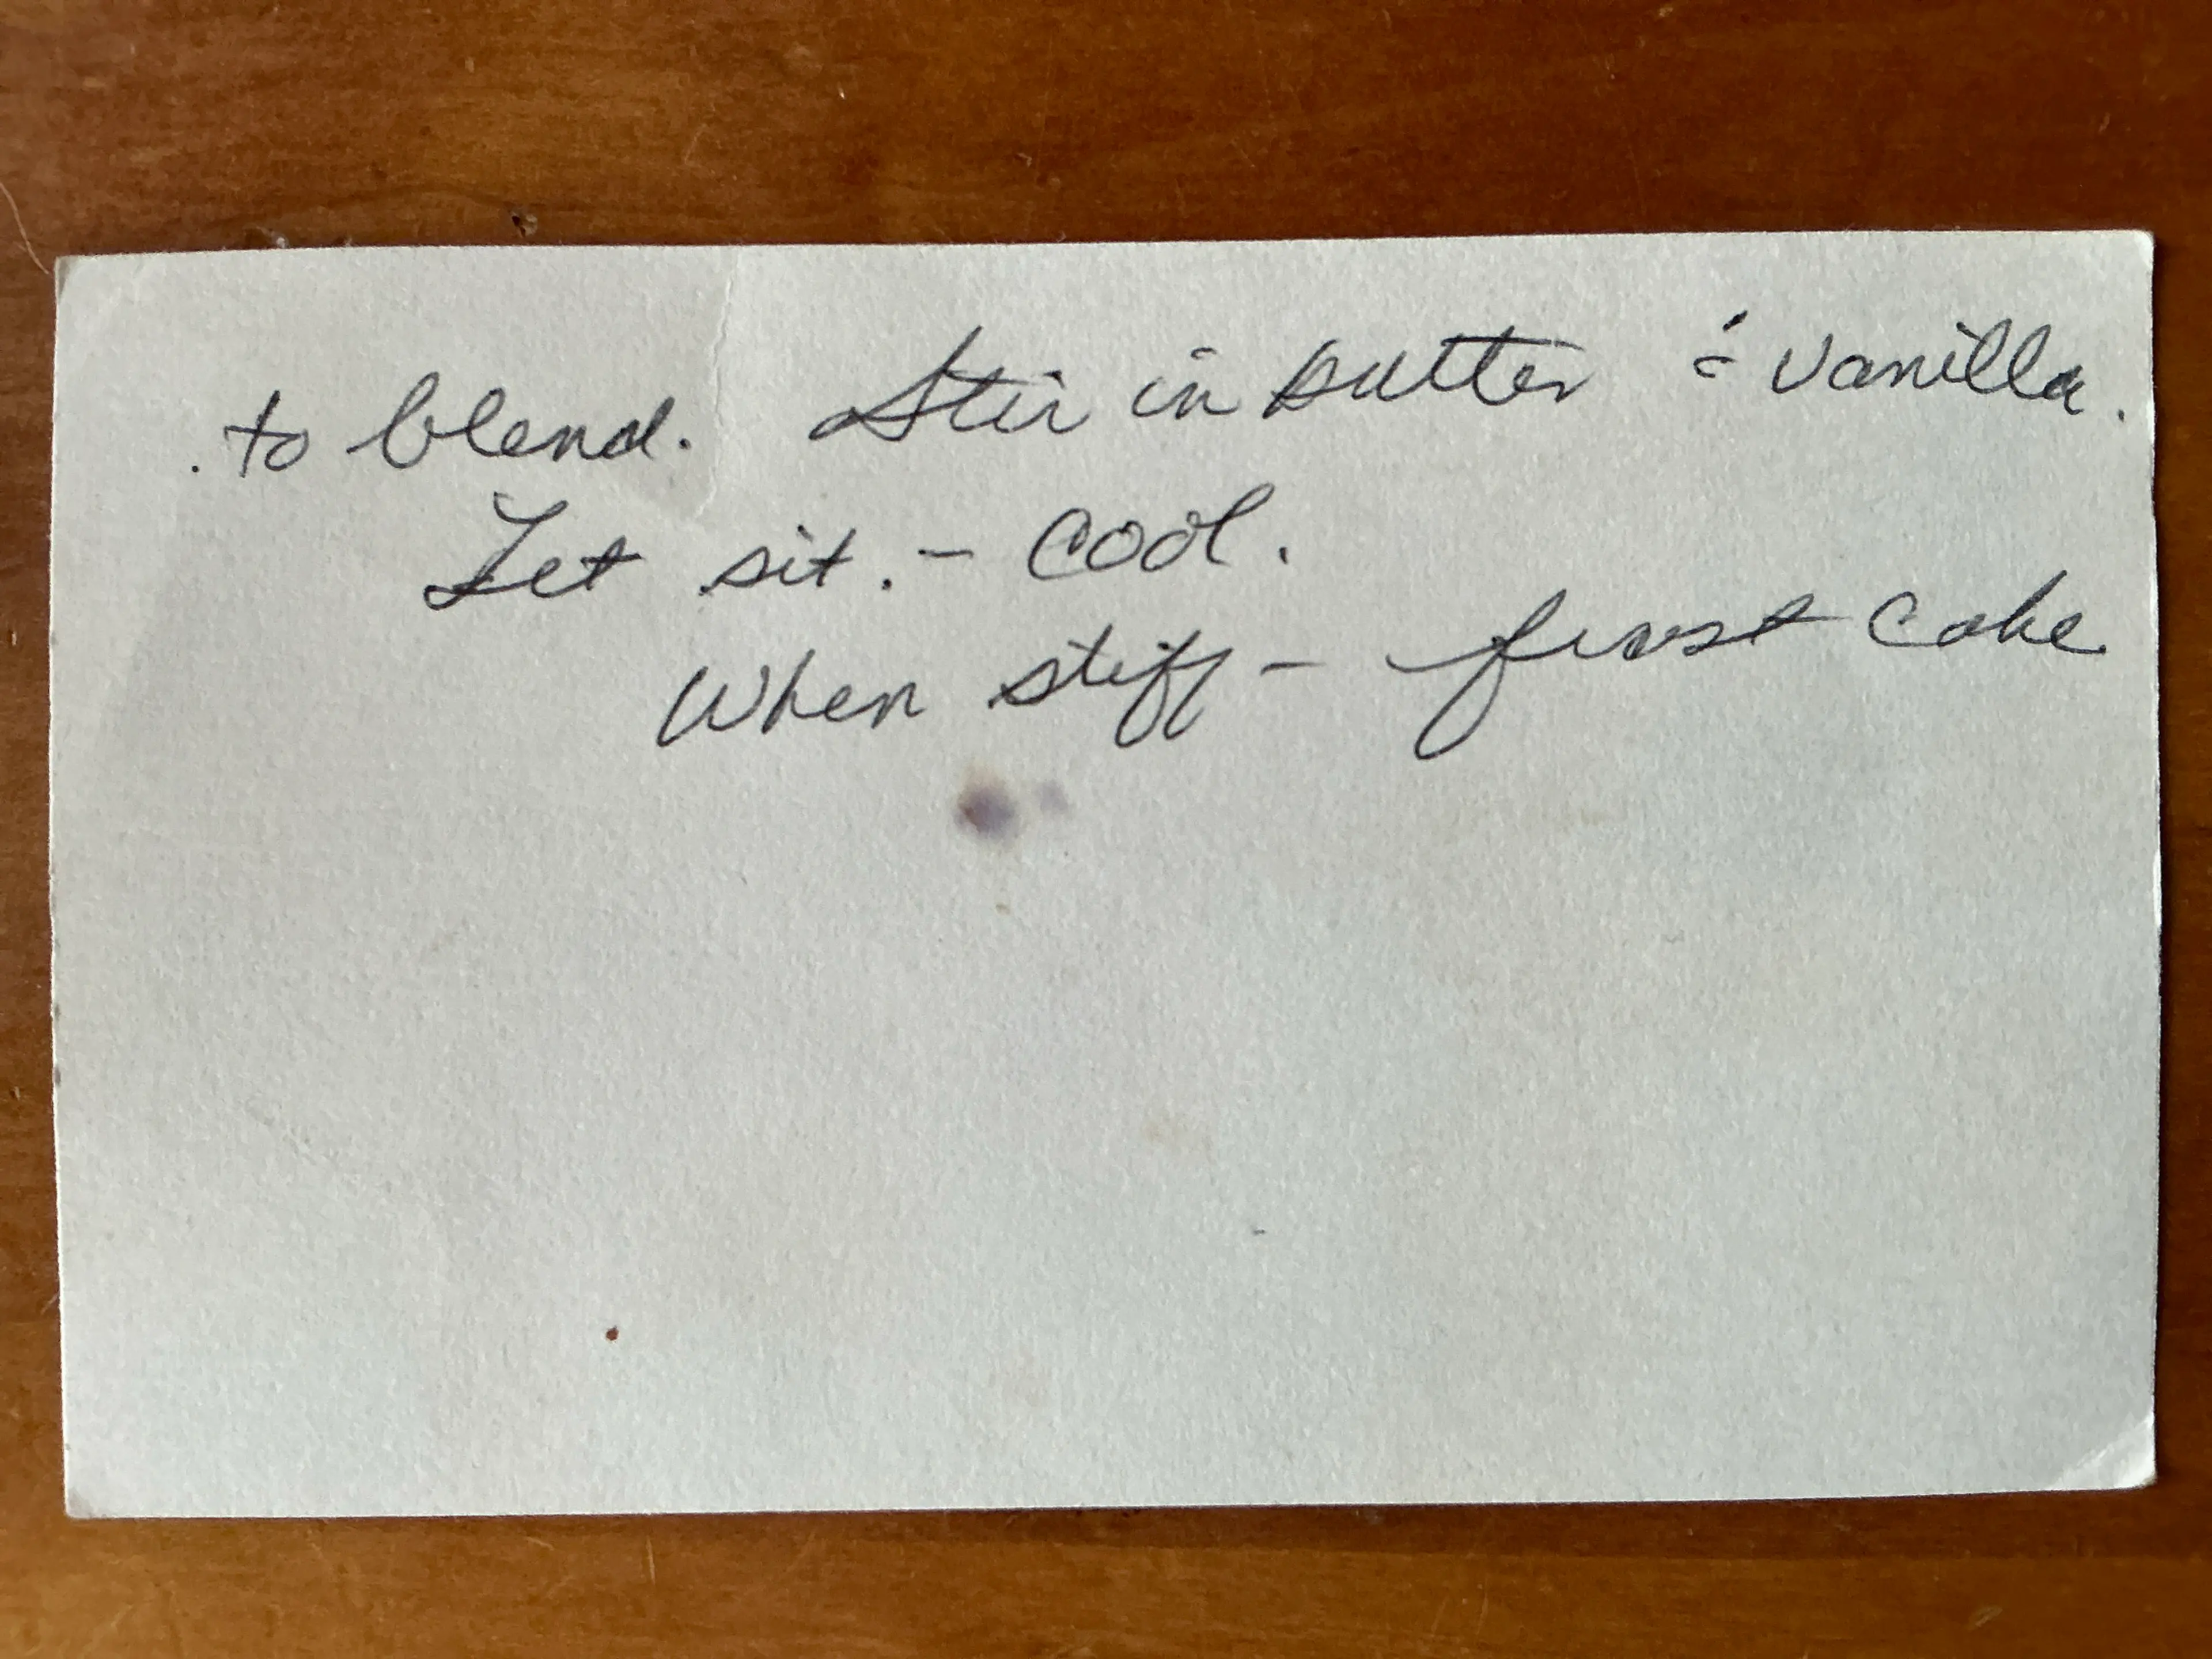 . to blend. Stir in butter & vanilla.
Let sit. - cool.
When stiff - frost cake